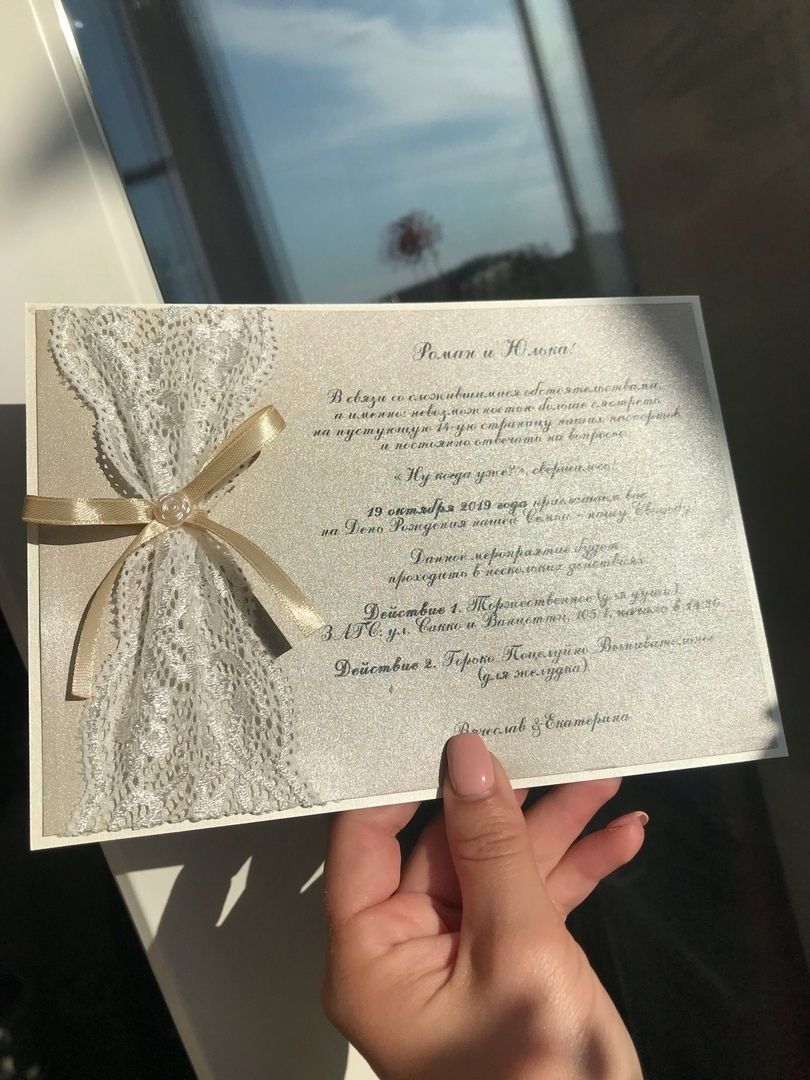 Роман и Юлька!
В связи со сложившимися обстоятельствами,
а именно: невозможностью больше смотреть
на пустующую 14-ую страницу наших паспортов
и постоянно отвечать на вопросы:
«Ну когда уже?», свершилось!
19 октября 2019 года приглашаем вас
на День Рождения нашей Семьи - нашу Свадьбу.
Данное мероприятие будет
проходить в нескольких действиях.
Действие 1. Торжественное (для души)
ЗАГС: ул. Сакко и Ванцетти, 105 начало в 14:20
Действие 2. Горько Поцелуйно Выпивательное
(для желудка)
Вячеслав & Екатерина